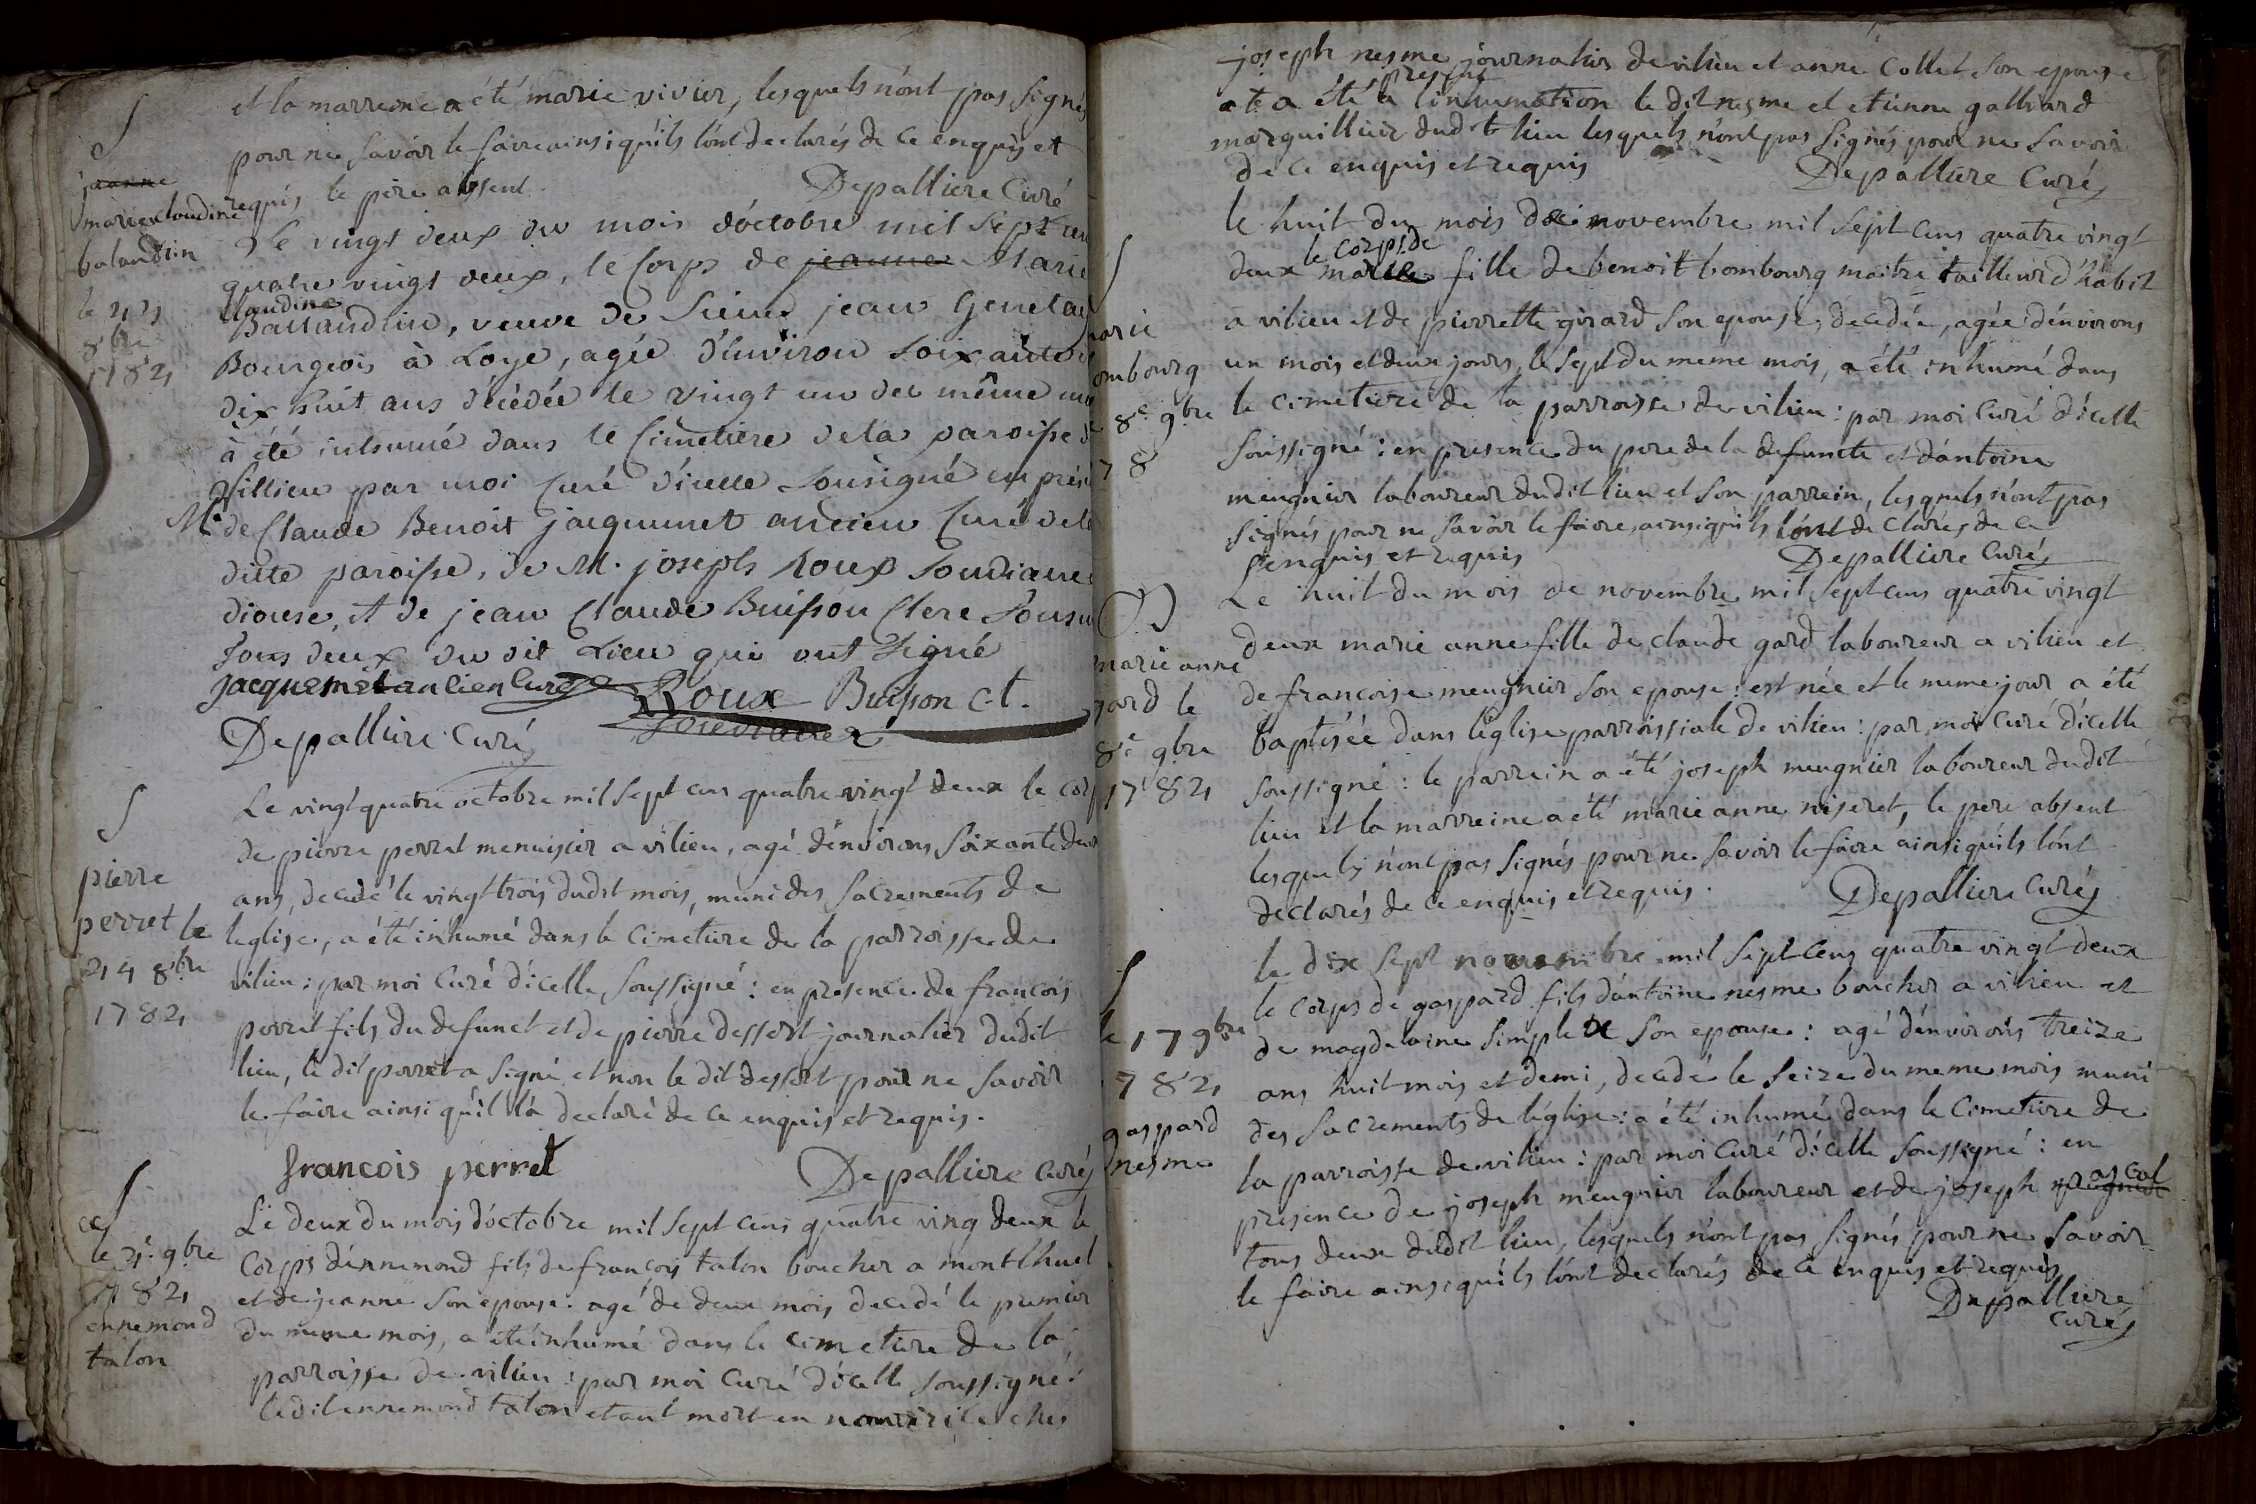 et la marreine a été marie vivier, lesquels n'ont pas signés
pour ne savoir le faire ainsi qu'ils l'ont declarés de ce enquis et
requis le père absent. Depalliere Curé
S
jeanne
marie claudine
balandrin
le 22
8bre
1782
Le vingt deux du mois d'octobre mil sept cen
quatre vingt deux, le Corps de jeanne Marie
Claudine
Ballandrin, veuve de Sieur jean Genet
Bourgeois à Loye, agée d'Environ soixante
dix huit ans décédée le vingt un du même
à été inhumé dans le Cimetiere de la paroisse de
Villieu par moi Curé d'icelle sousigné en prés
Mr. de Claude Benoit jacquemet ancien Curé de la
dite paroisse, de M. joseph Roux
diocese, et de jean Claude Buisson Clerc tonsu
tous deux du dit Lieu qui ont signé
jacquemet ancien Curé Roux Buisson c.t.
Depalliere Curé
S
pierre
perret le
24 8bre
1782
Le vingt quatre octobre mil sept cens quatre vingt deux le corp
de pierre perret menuisier a vilieu, agé d'environs soixante deux
ans, decedé le vingt trois dudit mois, muni des sacrements de
leglise, a été inhumé dans le cimetiere de la parroisse de
vilieu: par moi Curé d'icelle soussigné: en presence de francois
perret fils du defunct et de pierre dessert journalier dudit
lieu, le dit perret a signé et non le dit dessert pour ne savoir
le faire ainsi qu'il l'a declaré de ce enquis et requis.
francois perret Depalliere Curé
S
le 2e 9bre
1782
ennemond
talon
Le deux du mois d'octobre mil sept cens quatre ving deux le
Corps d'ennemond fils de françois talon boucher a montlhuel
et de jeanne son epouse. agé de deux mois decedé le premier
du meme mois, a été inhumé dans le cimetiere de la
parroisse de vilieu: par moi Curé d'icelle soussigné:
le dit ennemond talon etant mort en nourrice chés
joseph nesme journalier de vilieu et anne Collet son epouse
present
at a été a l'inhumation le dit nesme et etienne galliard
marguillier dudit lieu lesquels n'ont pas signés pour ne savoir
de ce enquis et requis Depalliere Curé
S
marie
bombourg
8e 9bre
78
le huit du mois de novembre mil sept cens quatre vingt
le corps de
deux marie fille de benoit bombourg maitre tailleur d'habit
a vilieu et de pierrette girard son epouse, decedée, agée d'environs
un mois et deux jours, le sept du meme mois, a été inhumé dans
le cimetiere de la parroisse de vilieu: par moi Curé d'icelle
soussigné: en presence du pere de la defuncte et d'antoine
meugnier laboureur dudit lieu et son parrein, lesquels n'ont pas
signés pour ne savoir le faire, ainsi qu'ils l'ont declarés de ce
enquis et requis Depalliere Curé
marie anne
gard le
8e 9bre
1782
Le huit du mois de novembre mil sept cens quatre vingt
deux marie anne fille de claude gard laboureur a vilieu et
de francoise meugnier son epouse: est née et le meme jour a été
baptisée dans l'eglise parroissiale de vilieu: par moi Curé d'icelle
soussigné: le parrein a été joseph meugnier laboureur dudit
lieu et la marreine a été marie anne niseret, le pere absent
lesquels n'ont pas signés pour ne savoir le faire ainsi qu'ils l'ont
declarés de ce enquis et requis. Depalliere Curé
S
le 17 9bre
1782
gaspard
nesme
le dix sept novembre mil sept cens quatre vingt deux
le corps de gaspard fils d'antoine nesme boucher a vilieu et
de magdelaine simplex son epouse: agé d'environs treize
ans huit mois et demi, decedé le seize du meme mois muni
des sacrements de l'église: a été inhumé dans le cimetiere de
la parroisse de vilieu: par moi Curé d'icelle soussigné: en
presence de joseph meugnier laboureur et de joseph pascal
tous deux dudit lieu, lesquels n'ont pas signés pour ne savoir
le faire ainsi qu'ils l'ont declarés de ce enquis et requis
Depalliere
Curé